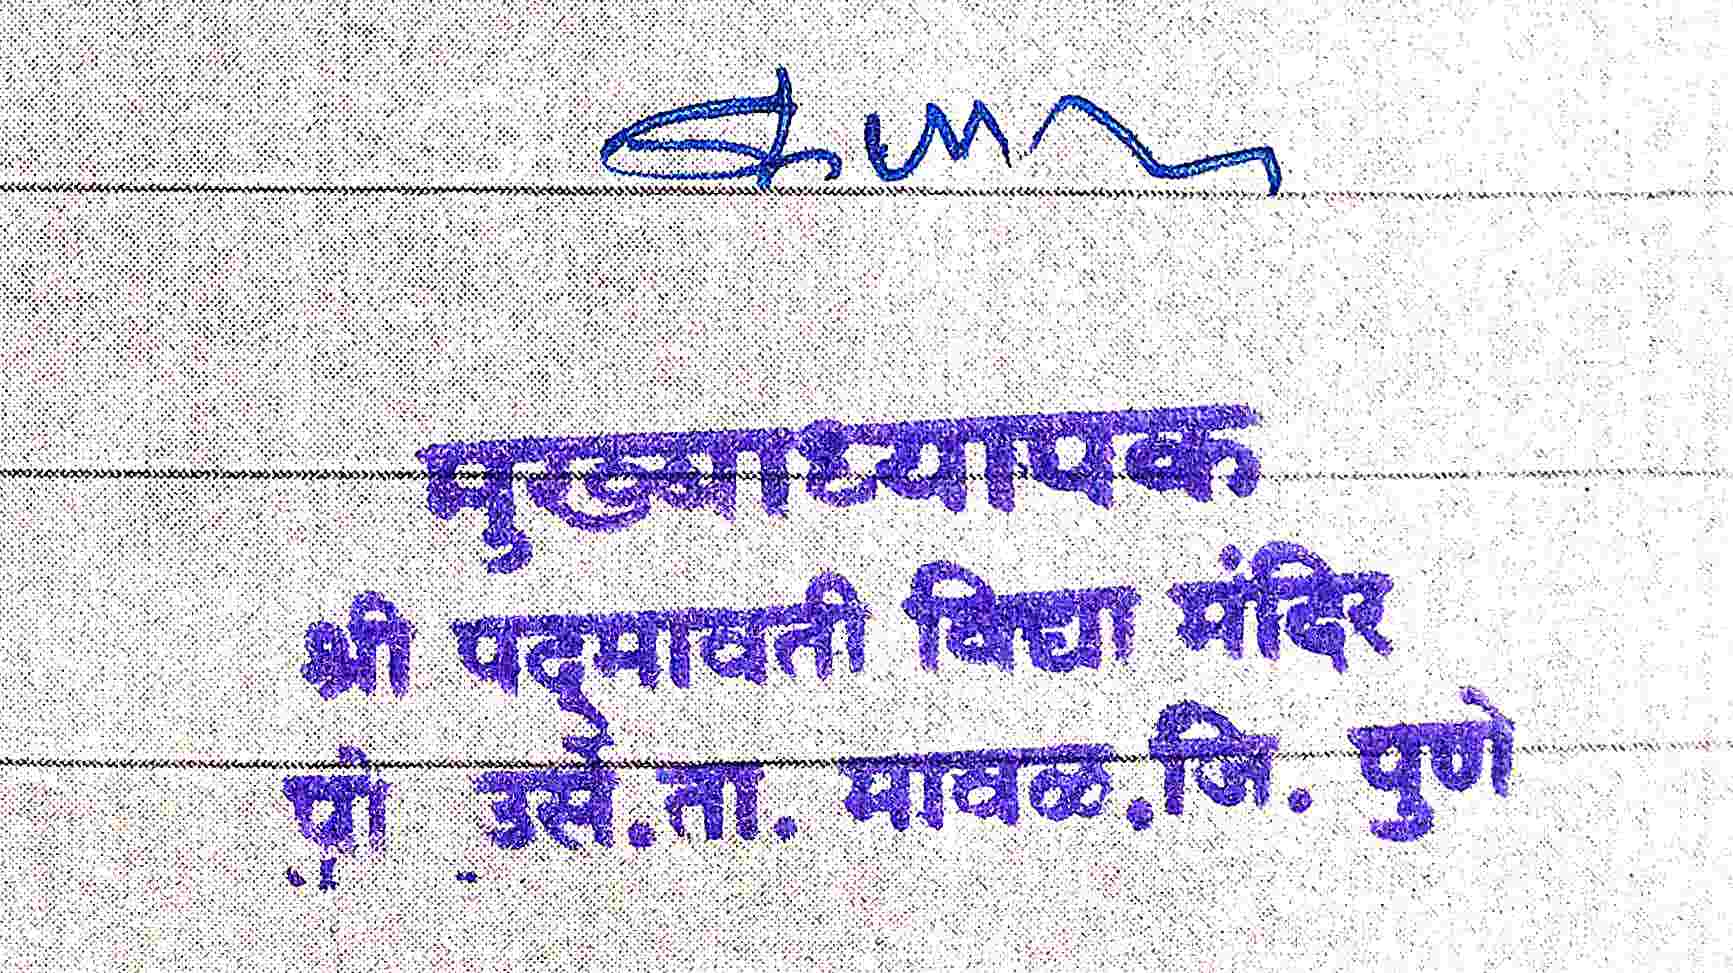 मुख्याध्यापक
श्री पद्मावती विद्या मंदिर
पो उर्से.ता. मावळ.जि. पुणे